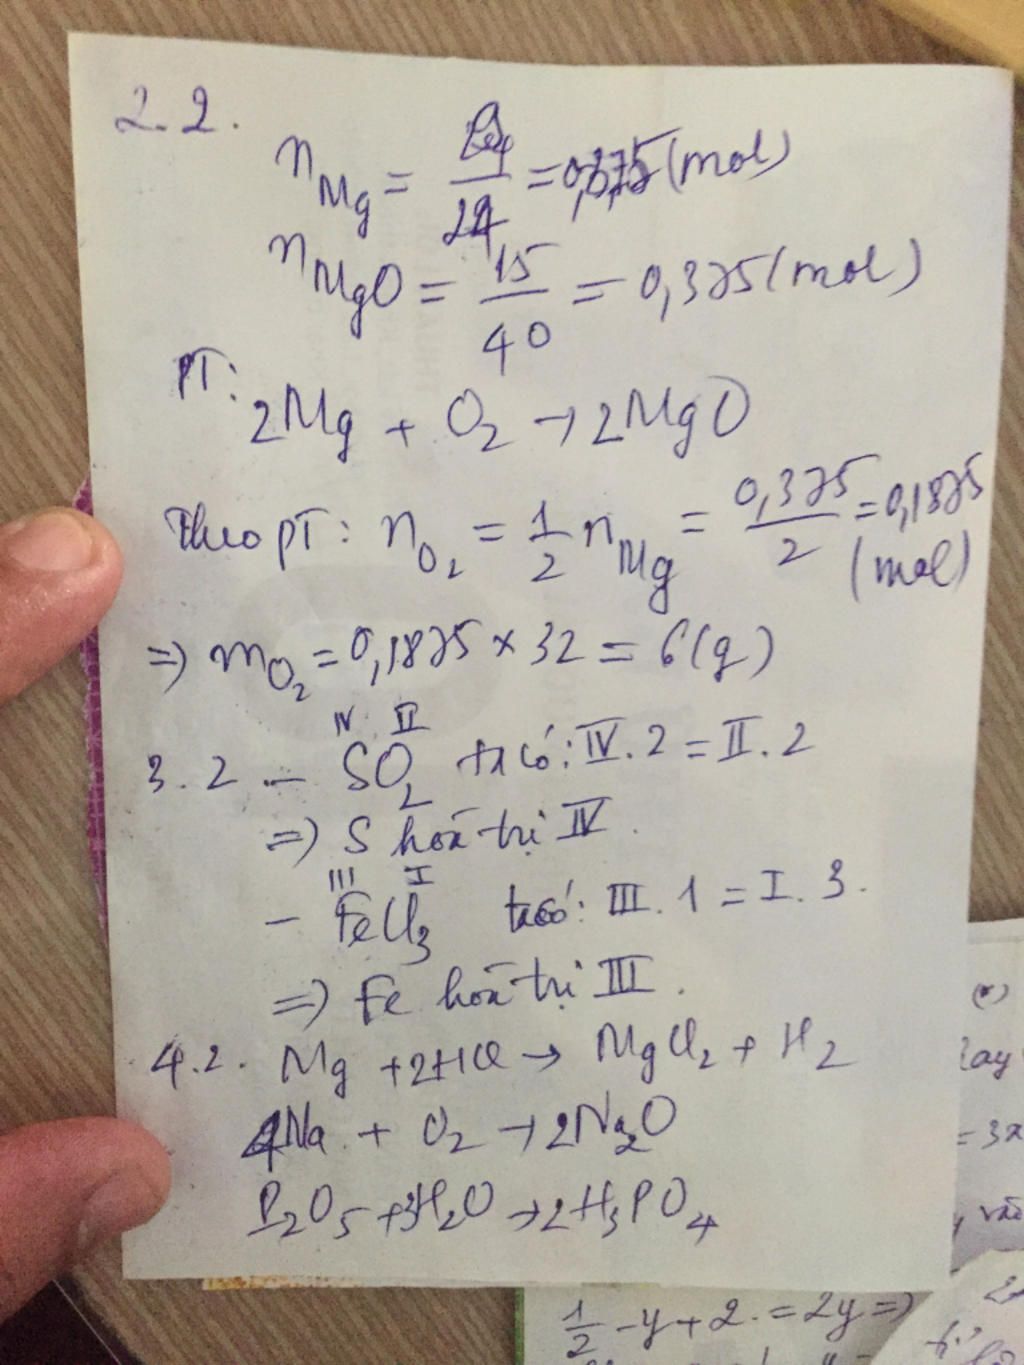 2.2.
n Mg = 9/24 = 0,375 (mol)
n MgO = 15/40 = 0,375 (mol)
PT:
2Mg + O2 → 2MgO
Theo PT: nO2 = 1/2 n Mg = 0,375/2 = 0,1875 (mol)
=> mO2 = 0,1875 × 32 = 6 (g)
IV II
3.2 - SO2 ta có: IV. 2 = II. 2
=> S hoá trị IV.
III I
- FeCl3 ta có: III. 1 = I. 3.
=> Fe hoá trị III.
4.2. Mg + 2HCl → MgCl2 + H2
4Na + O2 → 2Na2O
P2O5 + 3H2O → 2H3PO4
= 3x
1/2 - y + 2. = 2y =>